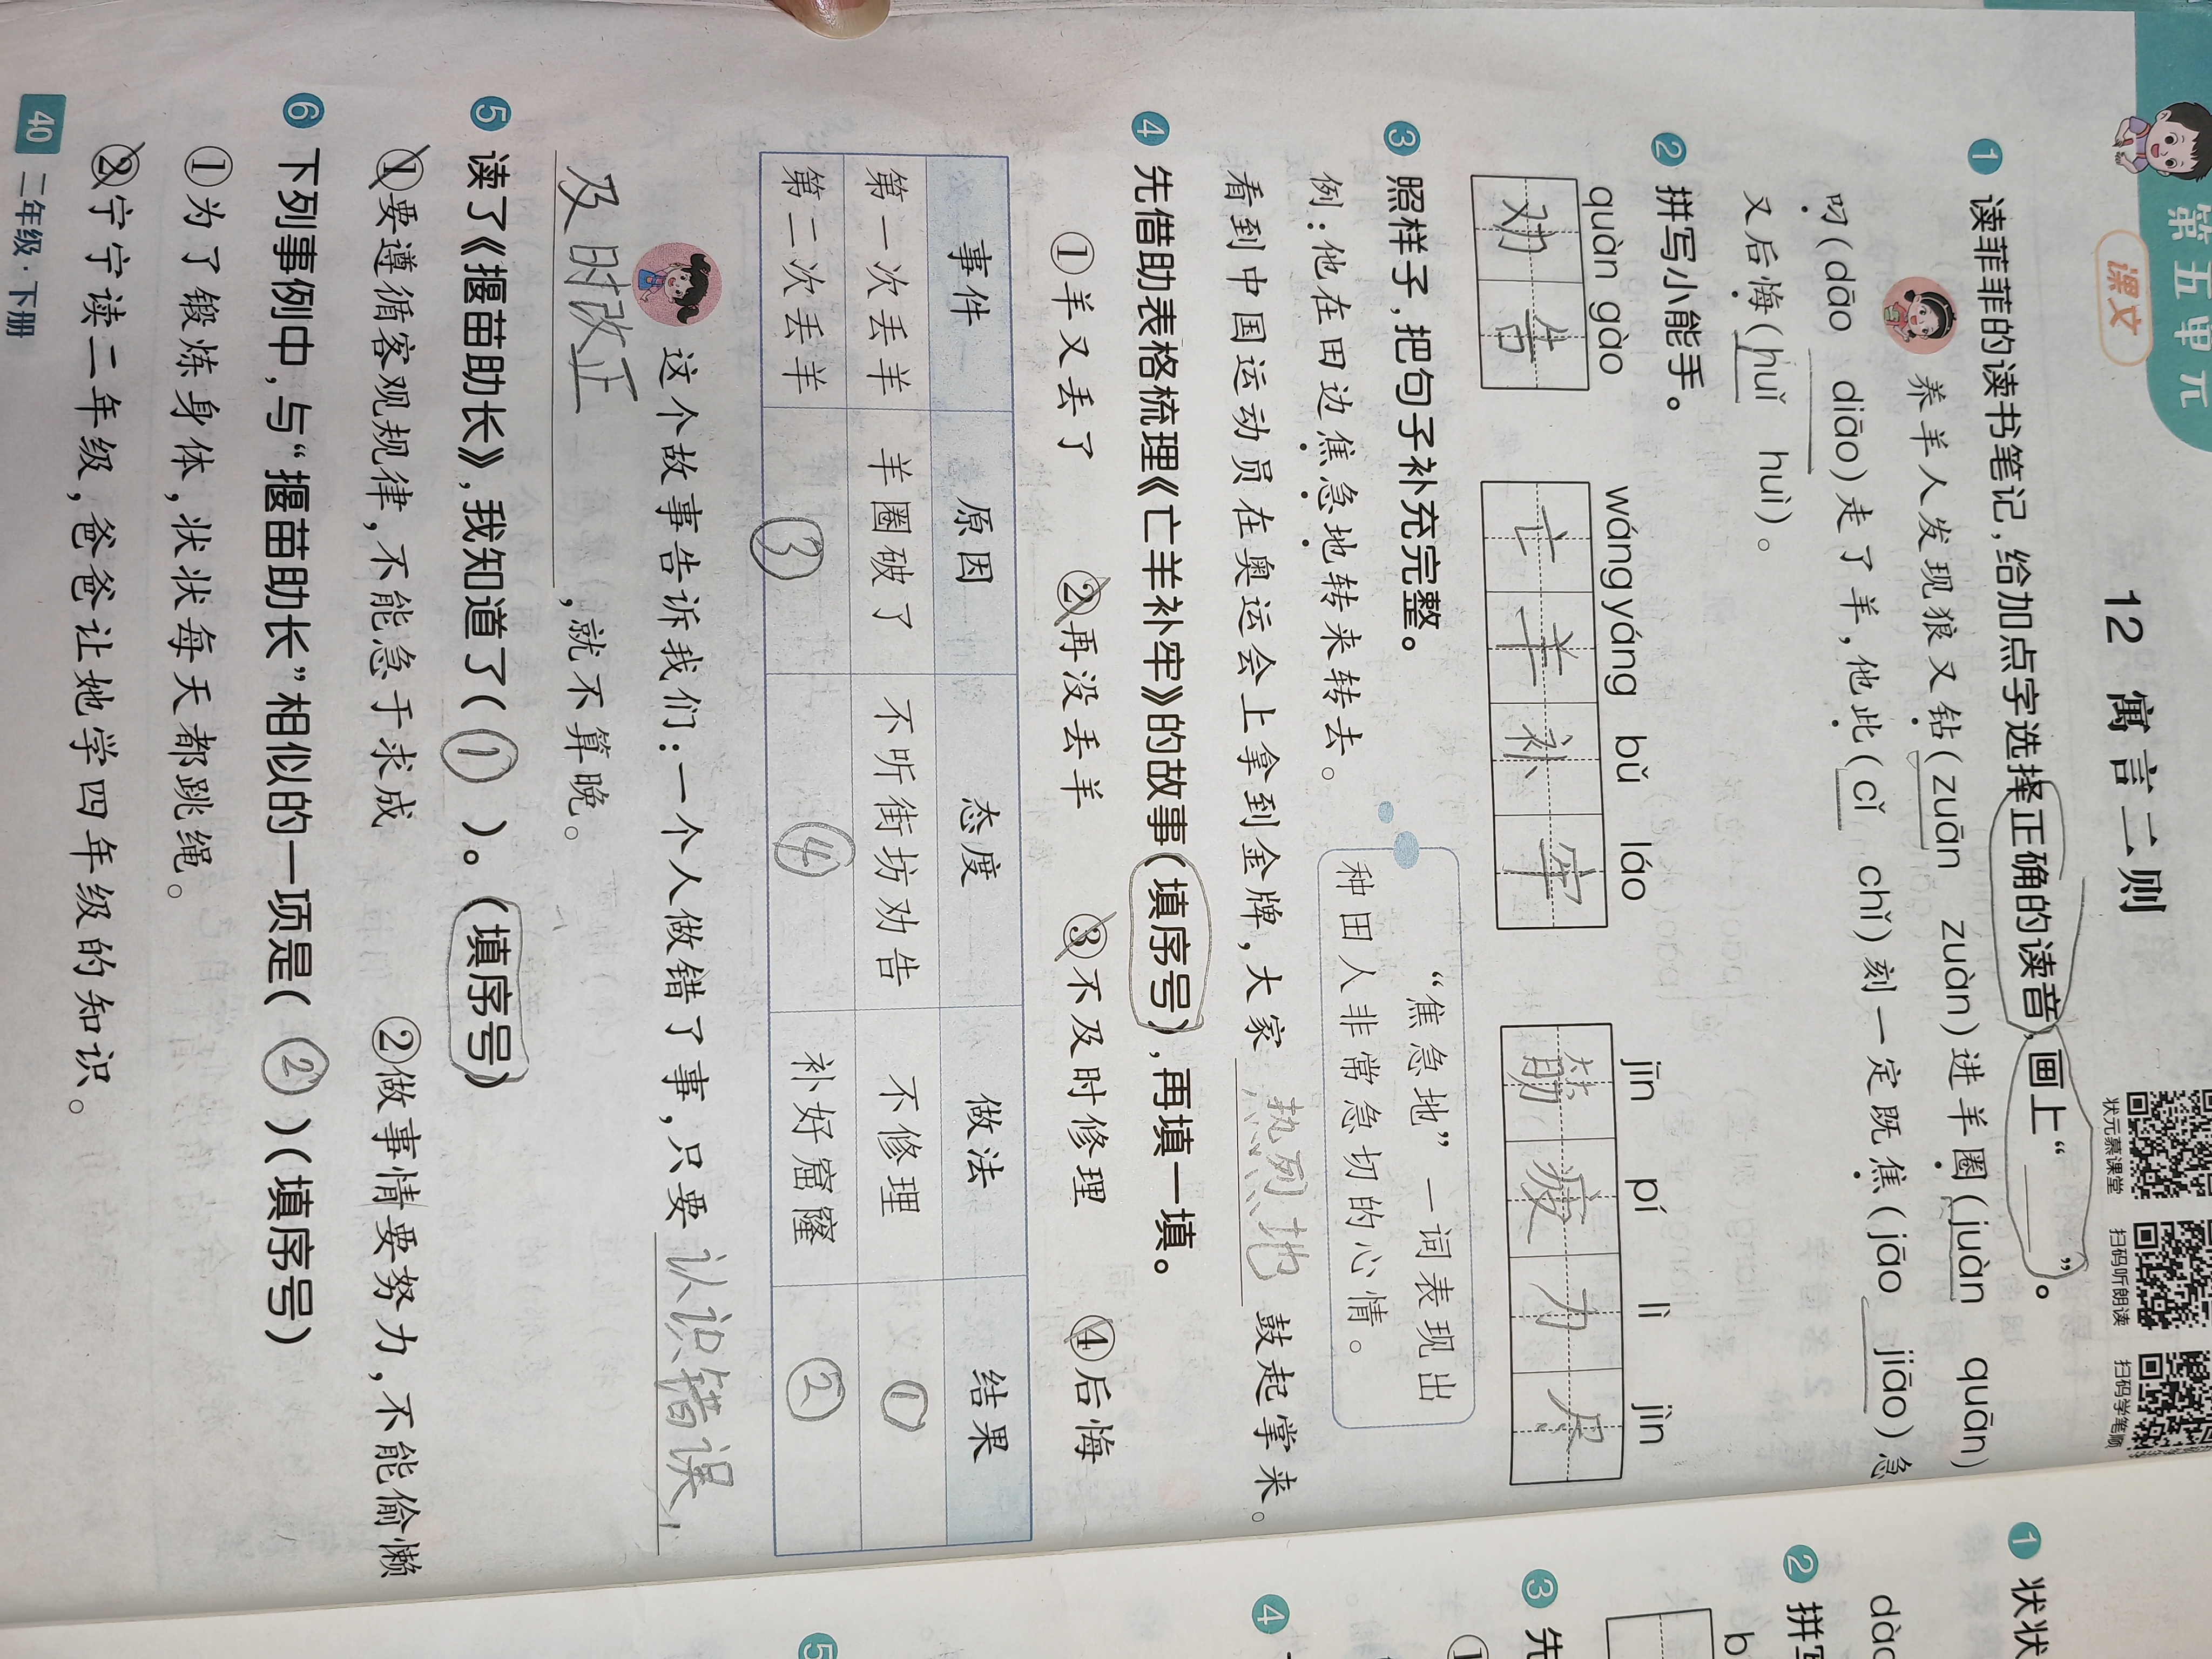 第五单元
课文
12 寓言二则
状元慕课堂
扫码听朗读
扫码学笔顺
1 读菲菲的读书笔记，给加点字选择正确的读音，画上“____”。
养羊人发现狼又钻（zuān zuàn）进羊圈（juàn quān）
叼（dāo diāo）走了羊，他此（cǐ chǐ）刻一定既焦（jāo jiāo）急
又后悔（huǐ huì）。
2 拼写小能手。
quàn gào wáng yáng bǔ láo jīn pí lì jìn
劝告 亡羊补牢 筋疲力尽
3 照样子，把句子补充完整。
例：他在田边焦急地转来转去。
“焦急地”一词表现出
种田人非常急切的心情。
看到中国运动员在奥运会上拿到金牌，大家热烈地鼓起掌来。
4 先借助表格梳理《亡羊补牢》的故事（填序号），再填一填。
①羊又丢了 ②再没丢羊 ③不及时修理 ④后悔
事件 原因 态度 做法 结果
第一次丢羊 羊圈破了 不听街坊劝告 不修理 ①
第二次丢羊 ③ ④ 补好窟窿 ②
这个故事告诉我们：一个人做错了事，只要认识错误，
及时改正，就不算晚。
5 读了《揠苗助长》，我知道了（①）。（填序号）
①要遵循客观规律，不能急于求成 ②做事情要努力，不能偷懒
6 下列事例中，与“揠苗助长”相似的一项是（②）（填序号）
①为了锻炼身体，状状每天都跳绳。
②宁宁读二年级，爸爸让她学四年级的知识。
40 二年级·下册
1 状状
dào
2 拼写
b
3 先
①
4
5